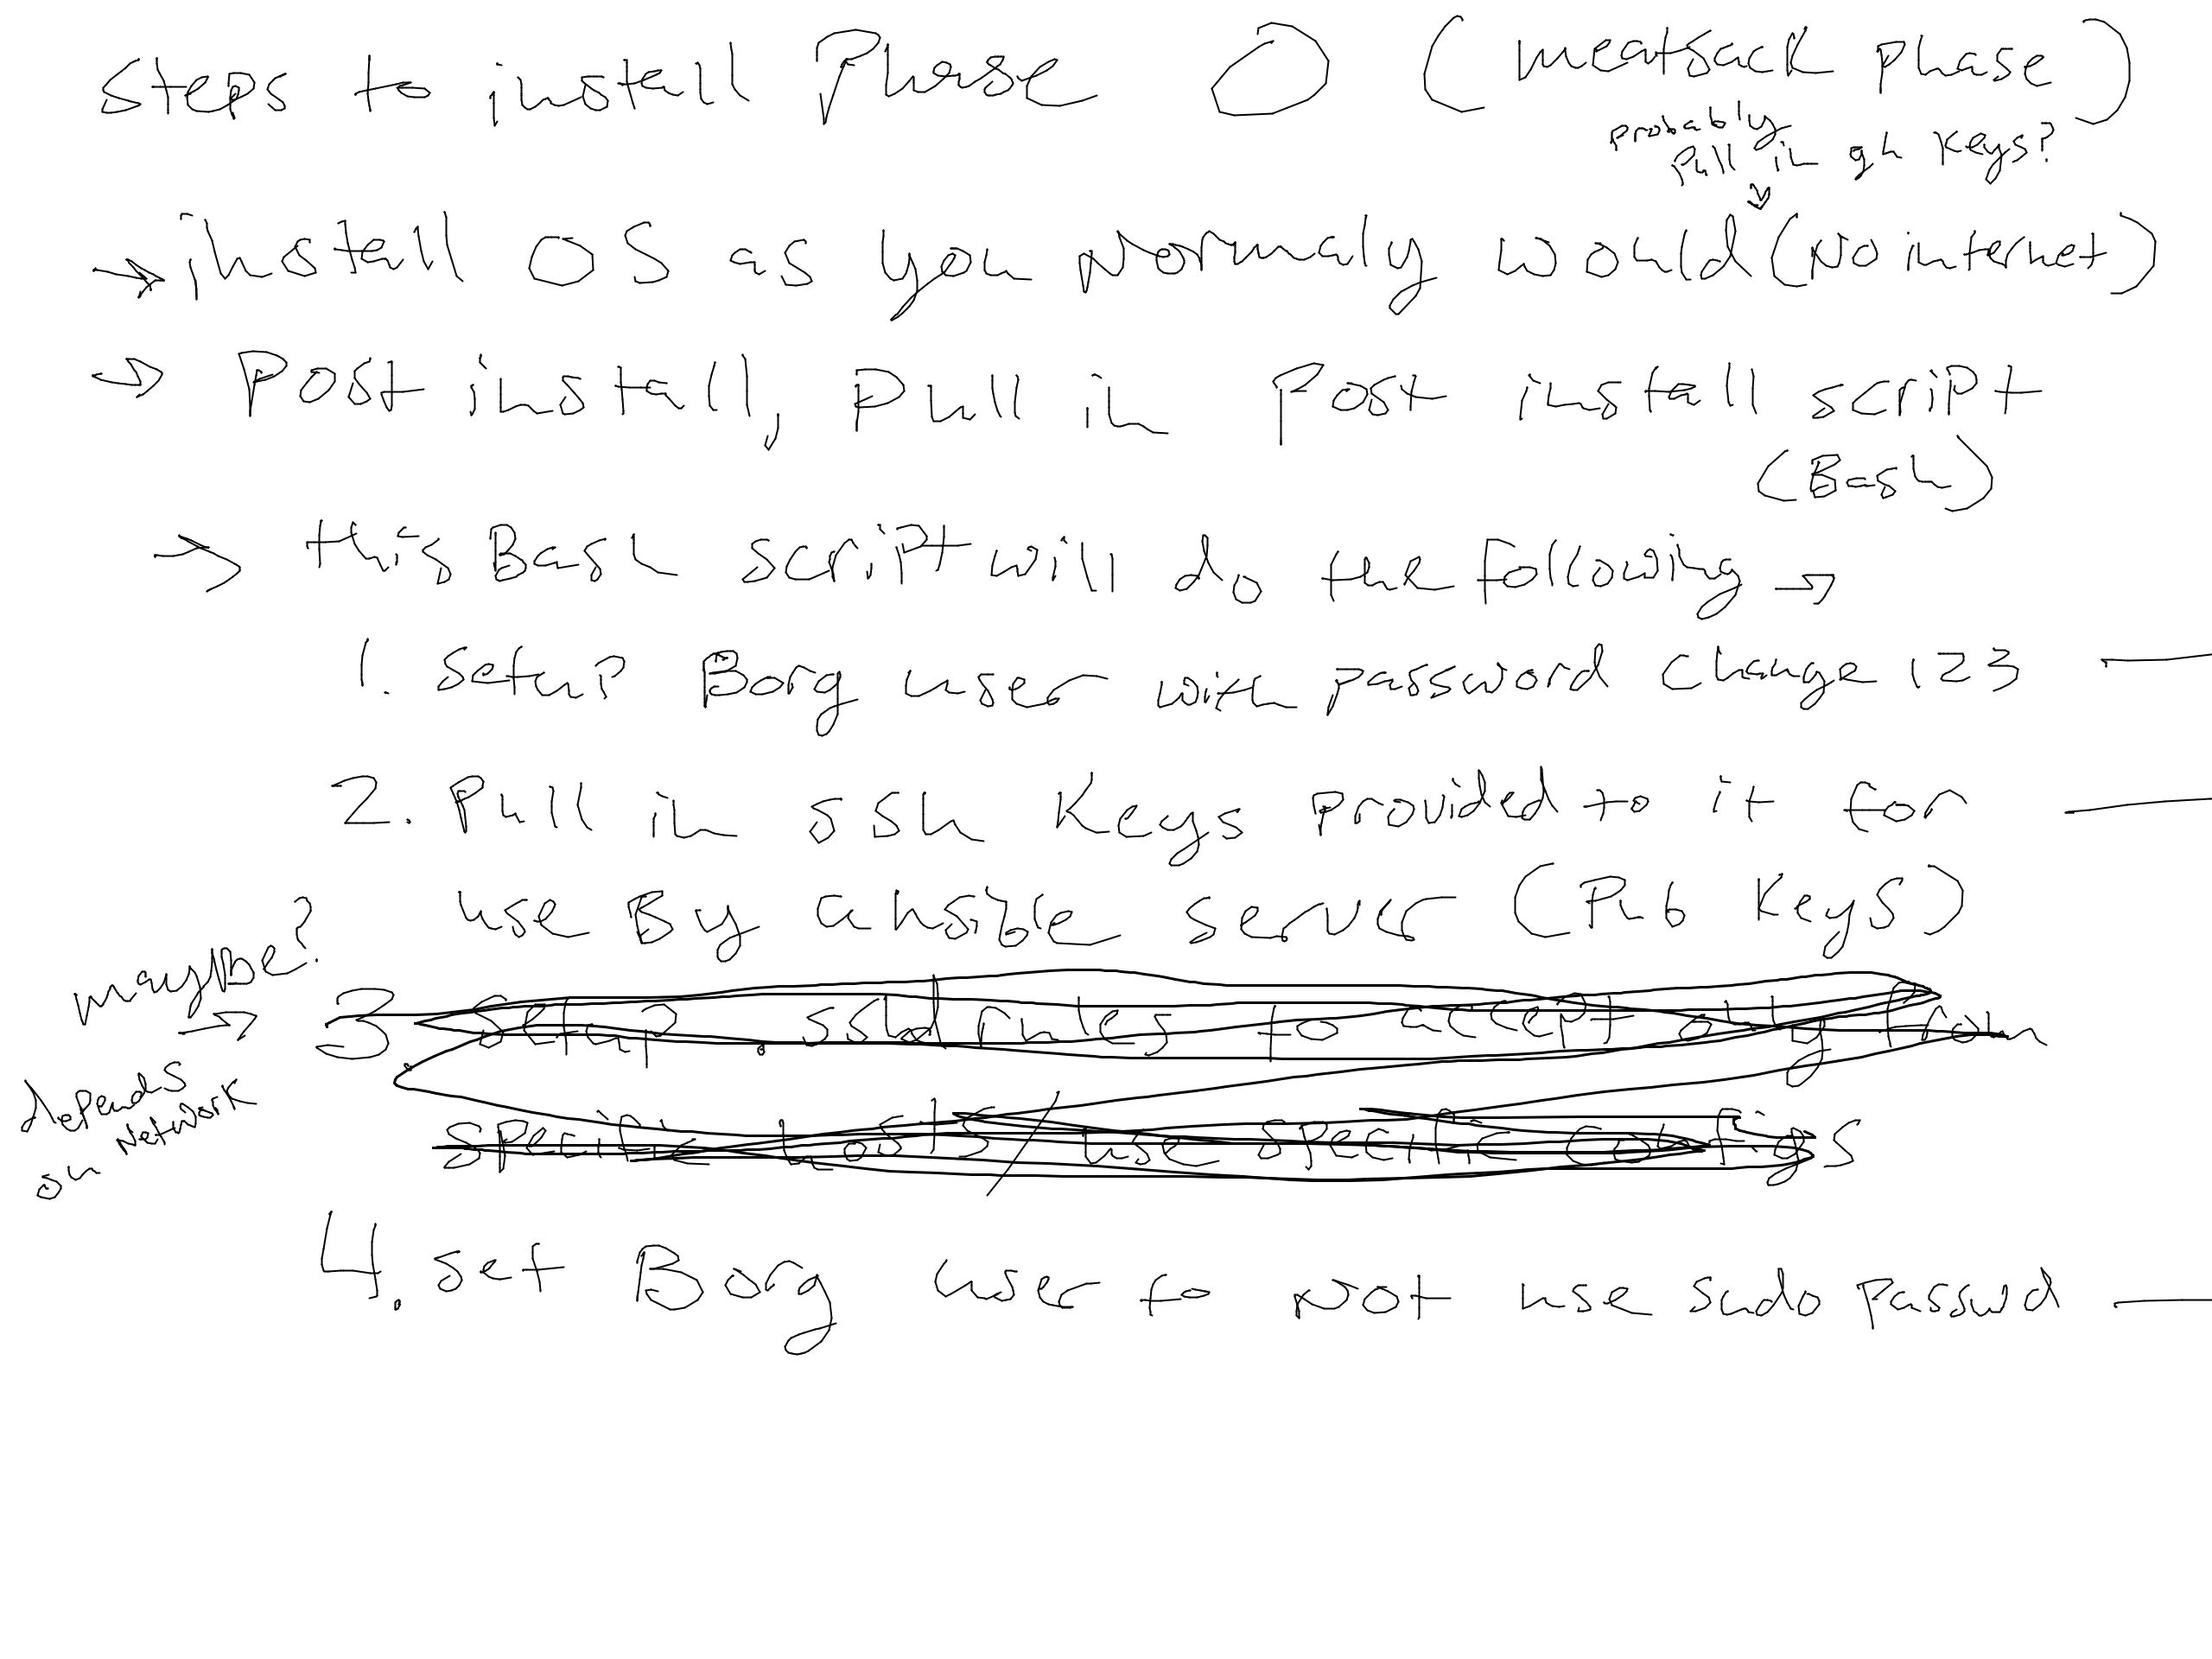 steps to install Phase 0 (meatsack phase)
probably
pull in gh keys?
→ install OS as you Normaly would (No internet)
→ Post install, pull in Post install script
(Bash)
→ this Bash script will do the following →
1. setup Borg user with password change 123 —
2. Pull in ssh keys provided to it for —
use By ansible server (Pub keys)
maybe?
→ 3 setup sshd rules to accept only from
depends
on Network
specific hosts / use specific configs
4. set Borg user to Not use sudo passwd —